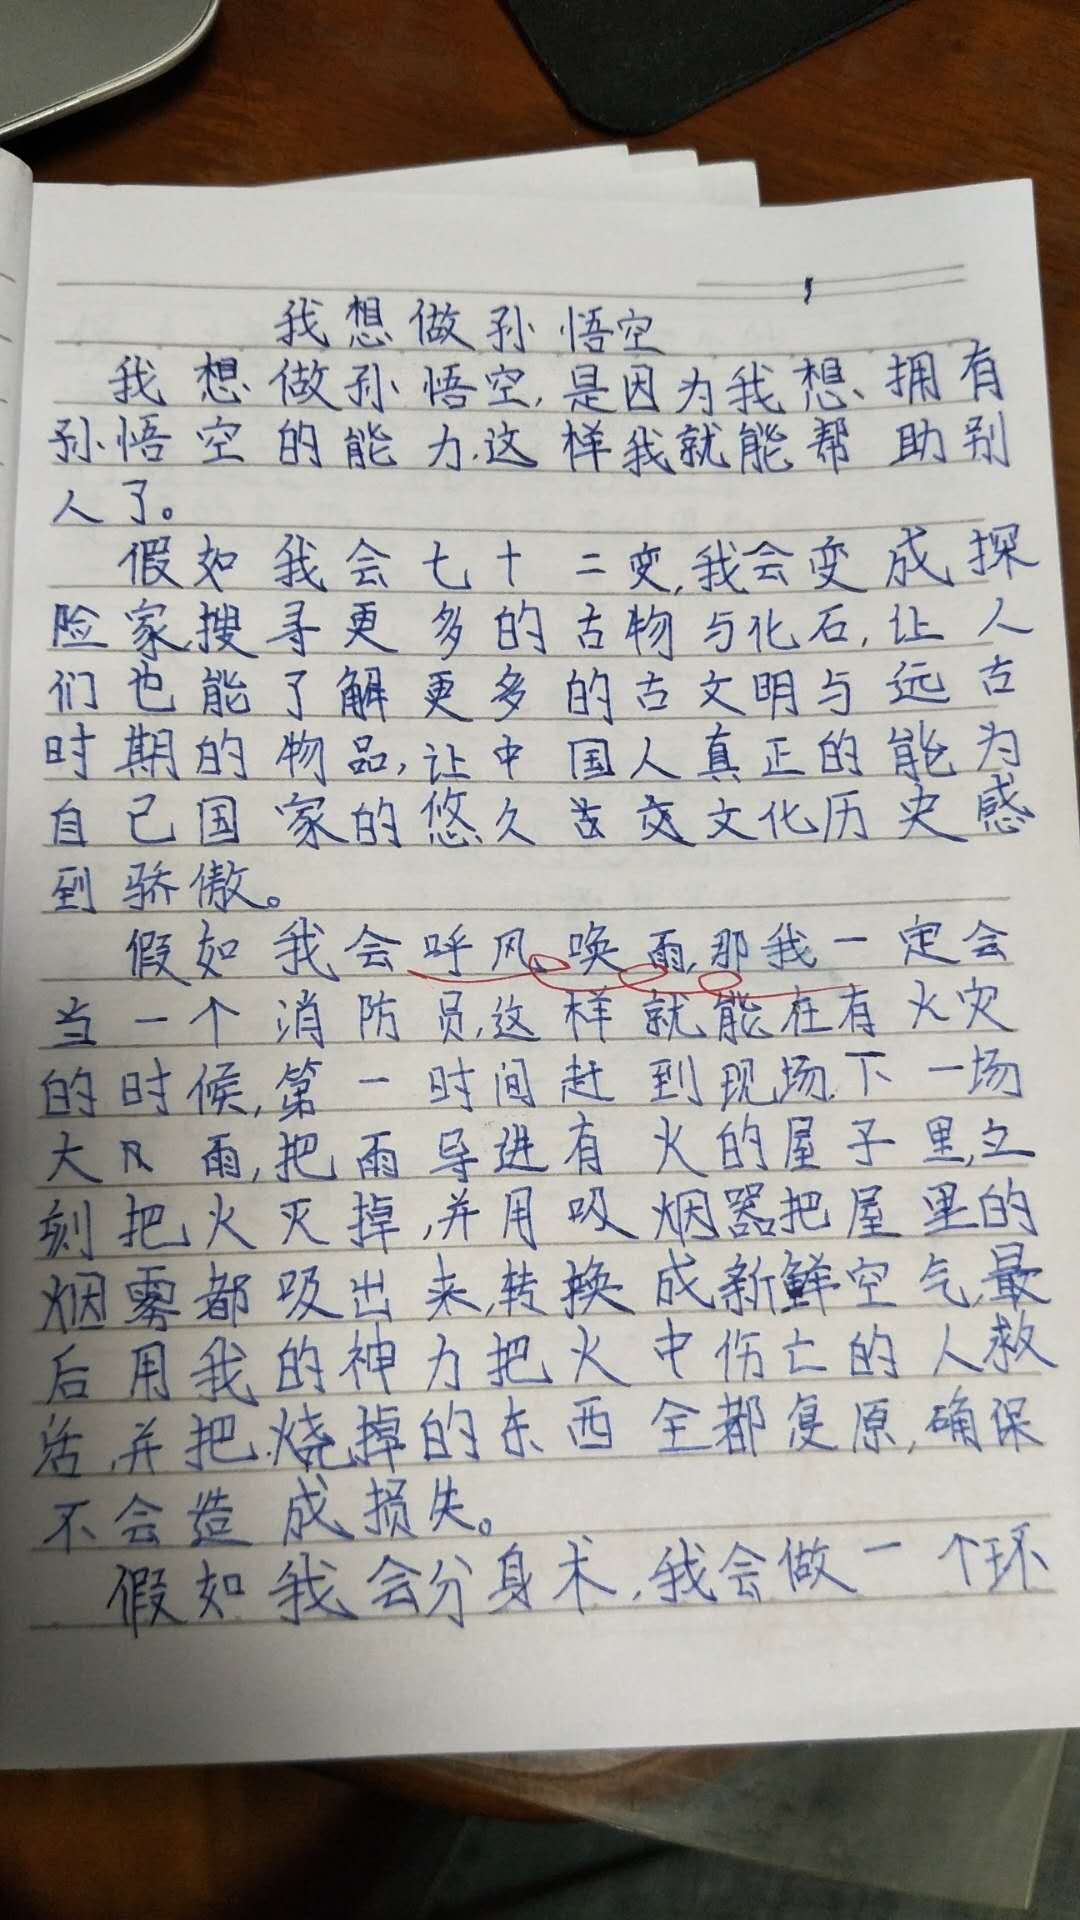 我想做孙悟空
我想做孙悟空,是因为我想、拥有
孙悟空的能力.这样我就能帮助别
人了。
假如我会七十二变,我会变成探
险家,搜寻更多的古物与化石,让人
们也能了解更多的古文明与远古
时期的物品,让中国人真正的能为
自己国家的悠久文化历史感
到骄傲。
假如我会呼风、唤雨,那我一定会
当一个消防员,这样就能在有火灾
的时候,第一时间赶到现场.下一场
大风雨,把雨导进有火的屋子里,立
刻把火灭掉,并用吸烟器把屋里的
烟雾都吸出来,转换成新鲜空气,最
后用我的神力把火中伤亡的人救
活,并把烧掉的东西全都复原,确保
不会造成损失。
假如我会分身术,我会做一个环